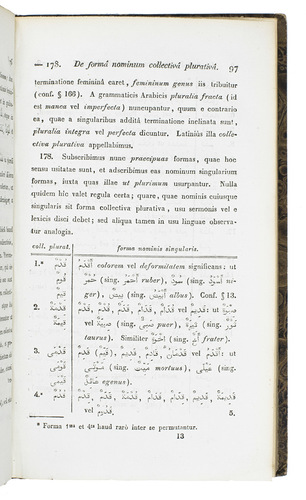 — 178. De formâ nominum collectivâ plurativâ. 97
terminatione femininâ caret, femininum genus iis tribuitur
(conf. § 166). A grammaticis Arabicis pluralia fracta (id
est manca vel imperfecta) nuncupantur, quum e contrario
ea, quae a singularibus additâ terminatione inclinata sunt,
pluralia integra vel perfecta dicuntur. Latiniùs illa colle-
ctiva plurativa appellabimus.
178. Subscribimus nunc praecipuas formas, quae hoc
sensu usitatae sunt, et adscribimus eas nominum singularium
formas, iuxta quas illae ut plurimum usurpantur. Nulla
quidem hîc valet regula certa; quare, quae nominis cuiusque
singularis sit forma collectiva plurativa, usu sermonis vel e
lexicis disci debet; sed aliqua tamen in usu linguae observa-
tur analogia.
coll. plurat. forma nominis singularis.
1.* colorem vel deformitatem significans: ut
(sing. ruber), (sing. ni-
ger), (sing. albus). Conf. § 13.
2. vel : ut
vel (sing. puer), (sing.
taurus). Similiter (sing. frater).
3. vel : ut
(sing. mortuus), (sing.
egenus).
4.*
vel 5.
* Forma 1ma et 4ta haud rarò inter se permutantur.
13